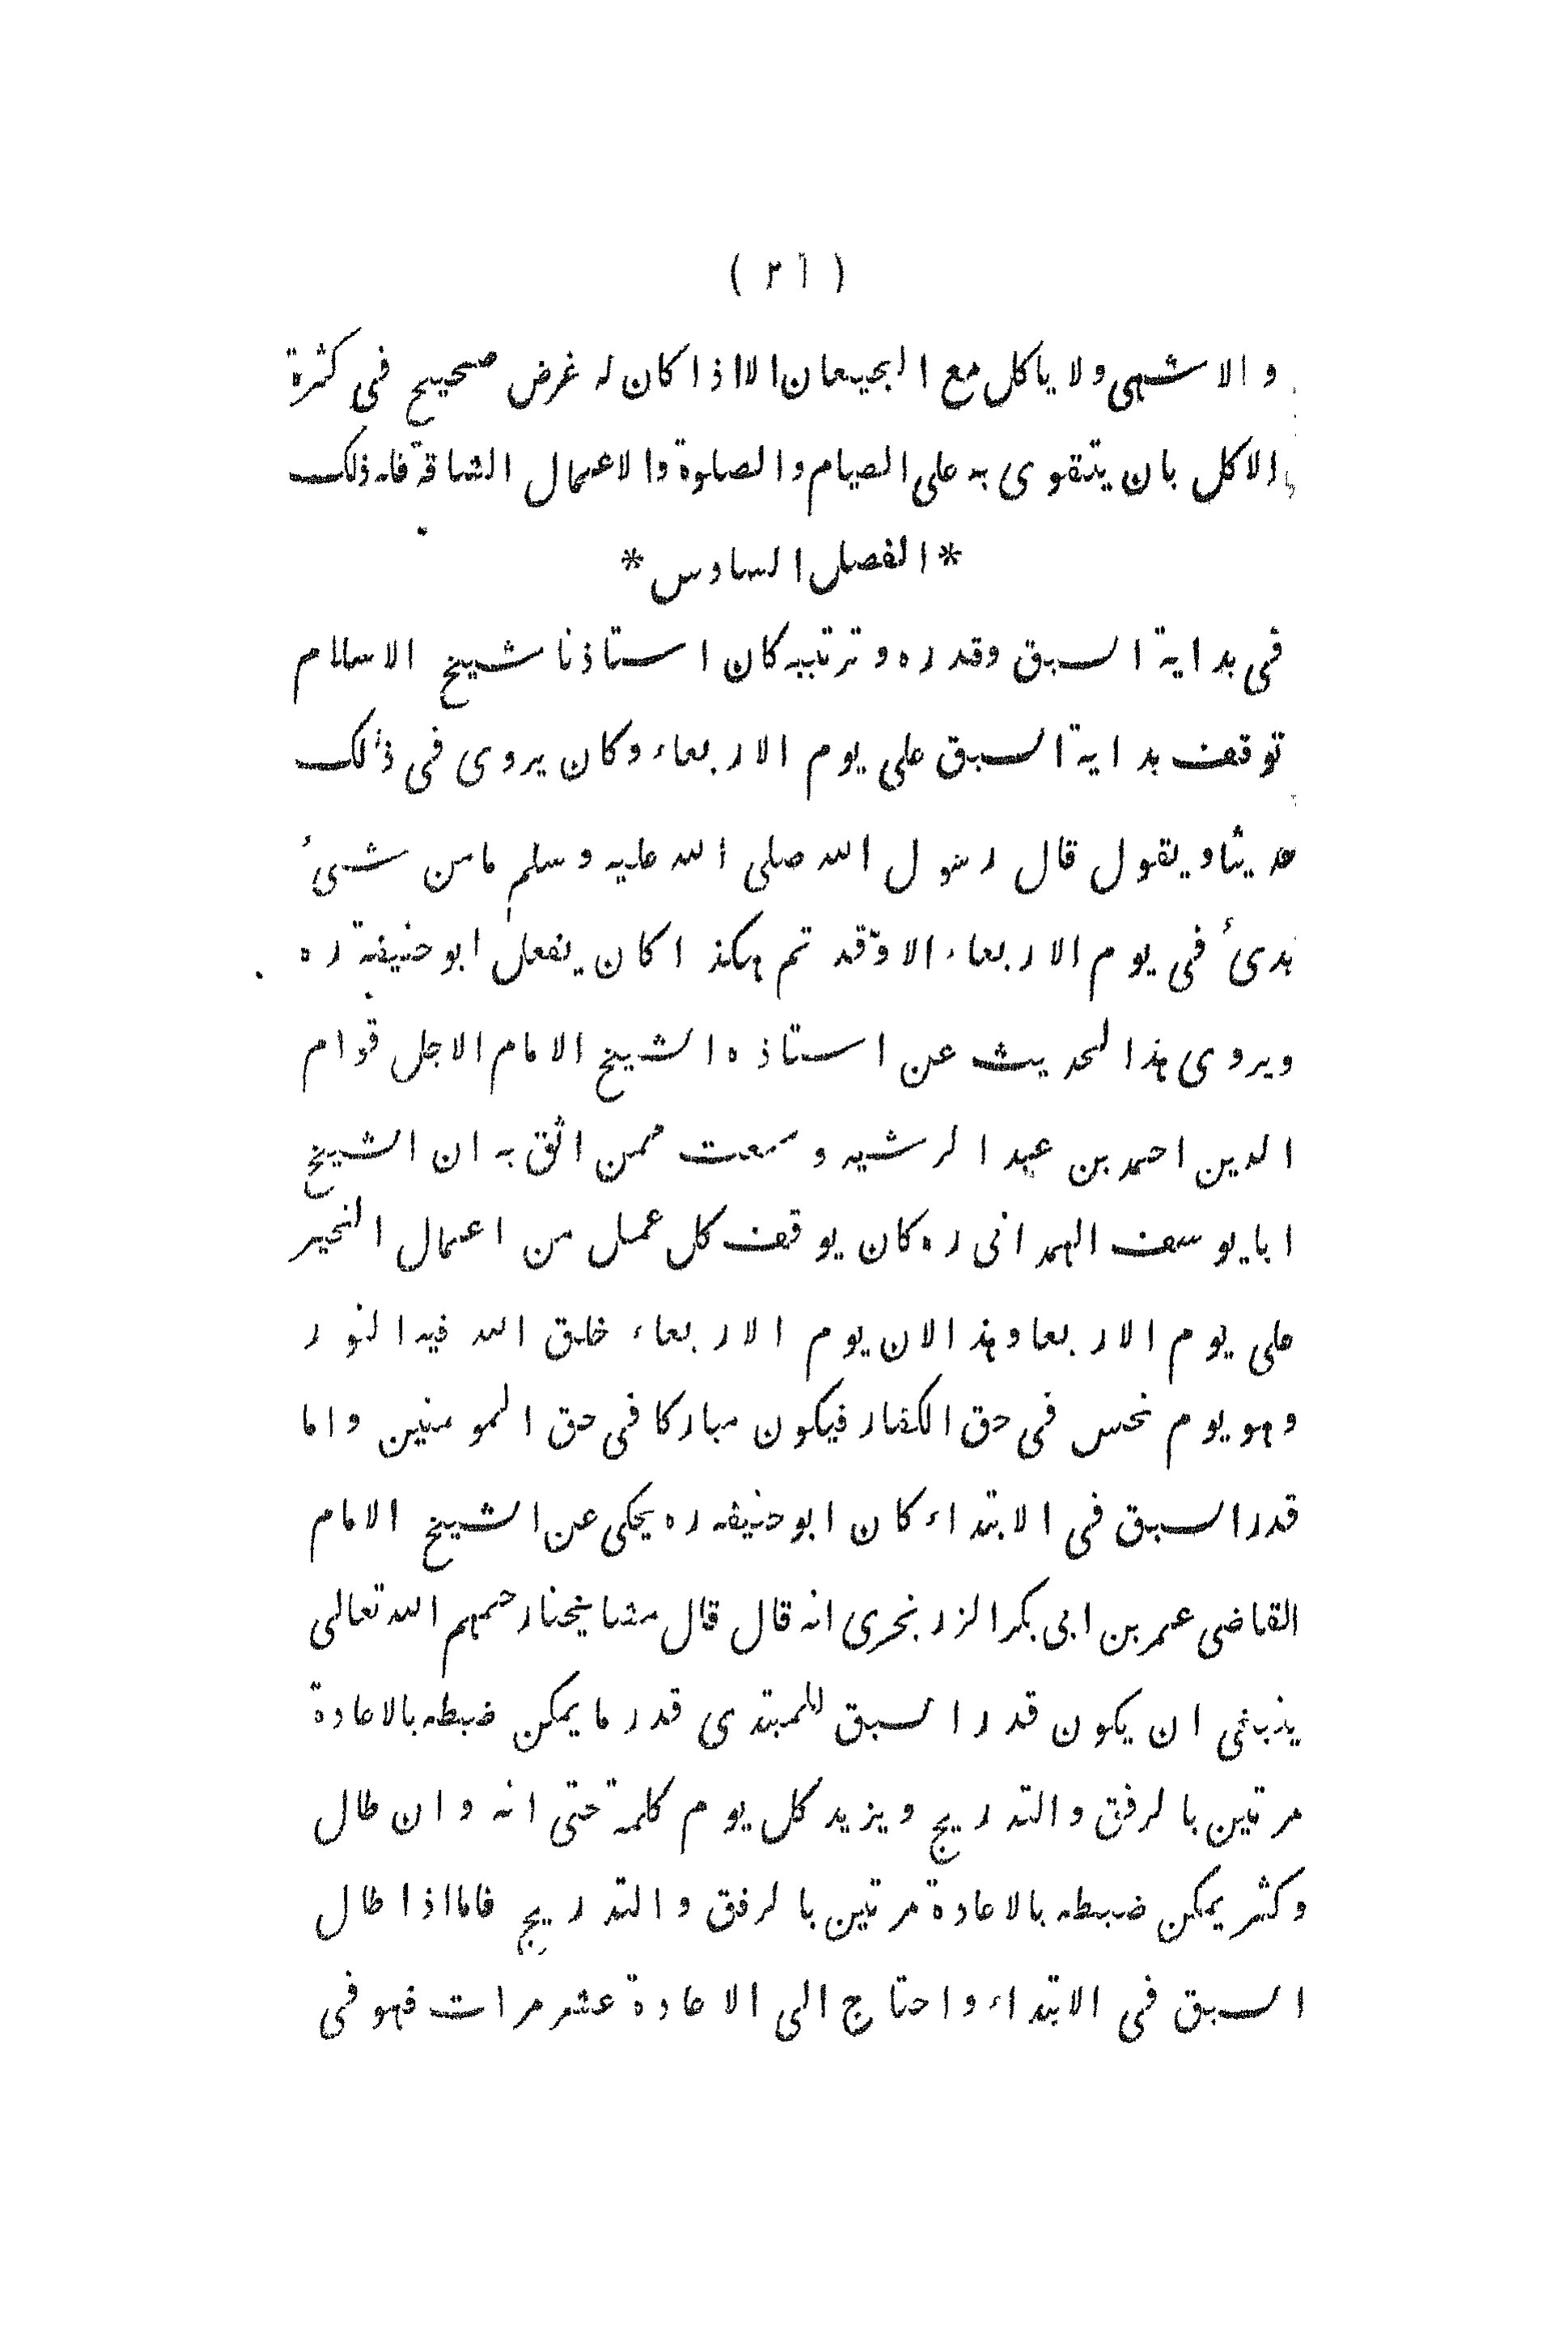 ( ٢١ )
والاشهى ولا ياكل مع الجيعان الا اذا كان له غرض صحيح فى كثرة
الاكل بان يتقوى به على الصيام والصلوة والاعمال الشاقة فله ذلك
*الفصل السادس*
فى بداية السبق وقدره وترتيبه كان استاذنا شيخ الاسلام
توقف بداية السبق على يوم الاربعاء وكان يروى فى ذلك
حديثا ويقول قال رسول الله صلى الله عليه وسلم مامن شىء
بدئ فى يوم الاربعاء الا وقد تم هكذا كان يفعل ابوحنيفة ره
ويروى هذا الحديث عن استاذه الشيخ الامام الاجل قوام
الدين احمد بن عبد الرشيد وسمعت ممن اثق به ان الشيخ
ابايوسف الهمدانى ره كان يوقف كل عمل من اعمال الخير
على يوم الاربعا وهذا لان يوم الاربعاء خلق الله فيه النور
وهو يوم نحس فى حق الكفار فيكون مباركا فى حق المومنين واما
قدر السبق فى الابتداء كان ابوحنيفه ره يحكى عن الشيخ الامام
القاضى عمر بن ابى بكر الزرنجرى انه قال قال مشايخنا رحمهم الله تعالى
ينبغى ان يكون قدر السبق للمبتدى قدر ما يمكن ضبطه بالاعادة
مرتين بالرفق والتدريج ويزيد كل يوم كلمة حتى انه وان طال
وكثر يمكن ضبطه بالاعادة مرتين بالرفق والتدريج فاما اذا طال
السبق فى الابتداء واحتاج الى الاعادة عشر مرات فهو فى